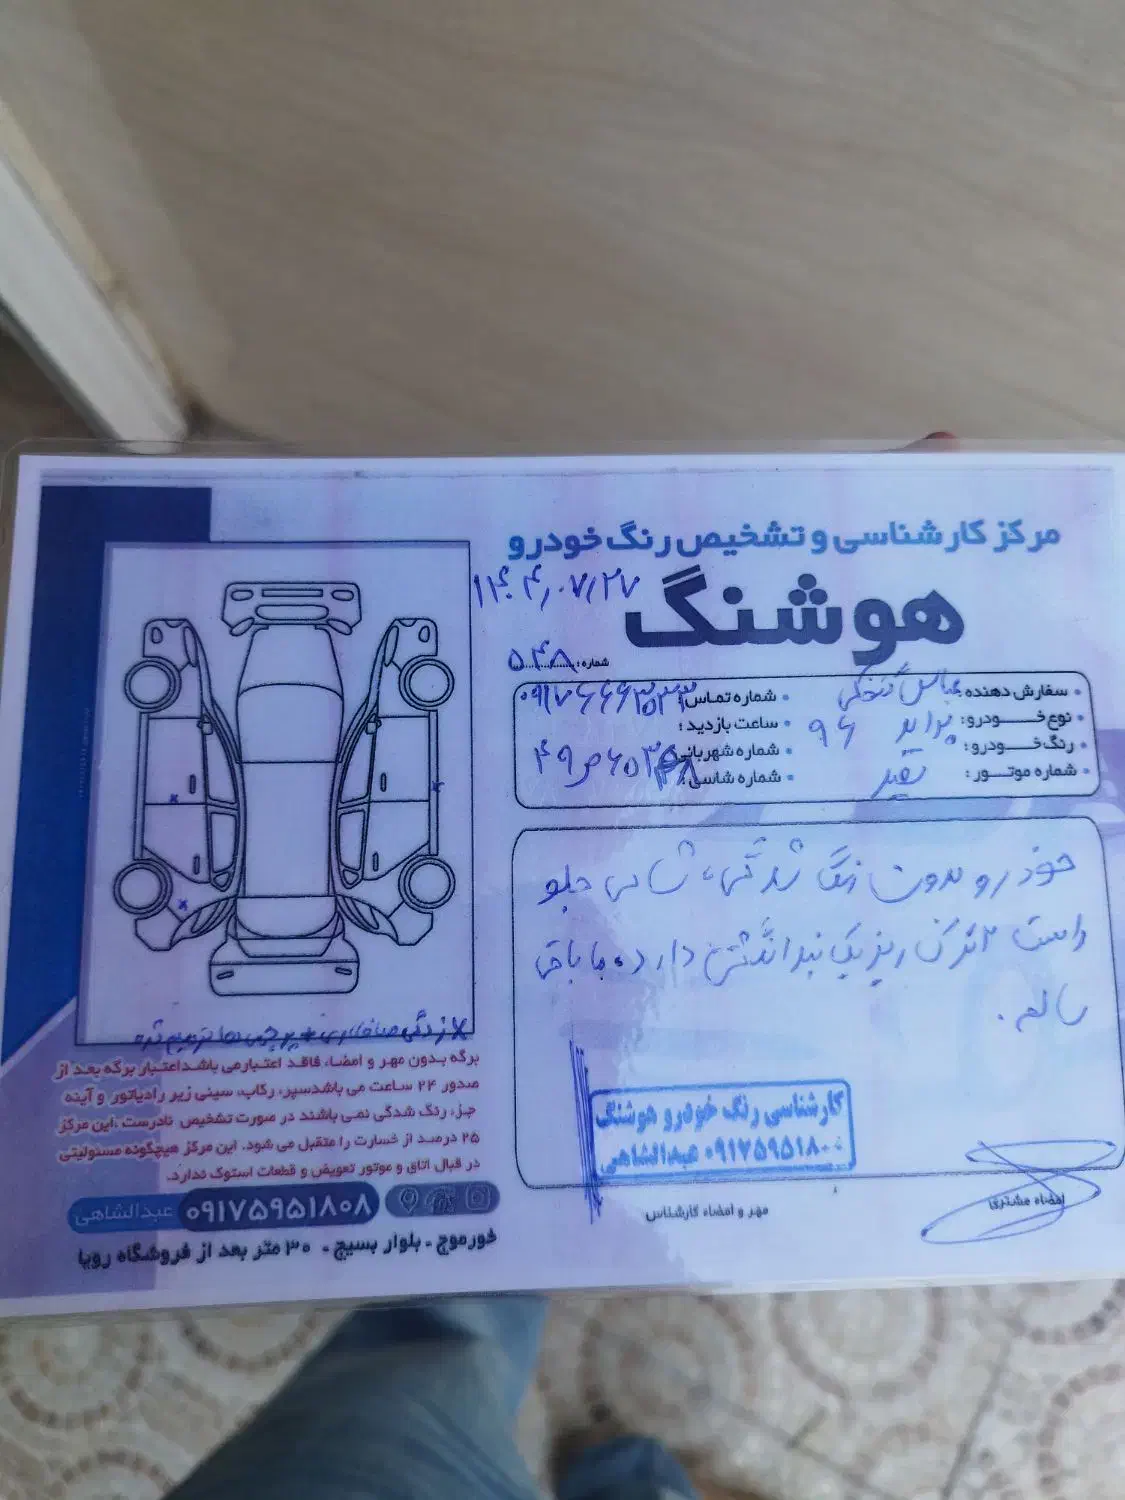 مرکز کارشناسی و تشخیص رنگ خودرو
۱۴۰۴٫۰۷٫۲۷
هوشنگ
شماره: ۵۴۸
سفارش دهنده: عباس
شماره تماس: ۰۹۱۷۶۶۶۳۵۳۳
نوع خودرو: پراید ۹۶
ساعت بازدید:
رنگ خودرو: سفید
شماره شهربانی:
شماره موتور:
شماره شاسی:
خودرو بدون رنگ شدگی، شاسی جلو
راست ۲ ترک ریز یک بند انگشتی دارد، مابقی
سالم.
کارشناسی رنگ خودرو هوشنگ
۰۹۱۷۵۹۵۱۸۰۰ عبدالشاهی
مهر و امضاء کارشناس
امضاء مشتری
x زدگی صافکاری + پرچی ها ترمیم شده
برگه بدون مهر و امضا، فاقد اعتبار می باشد اعتبار برگه بعد از
صدور ۲۴ ساعت می باشد سپر، رکاب، سینی زیر رادیاتور و آینه
جز، رنگ شدگی نمی باشند در صورت تشخیص نادرست، این مرکز
۲۵ درصد از خسارت را متقبل می شود. این مرکز هیچگونه مسئولیتی
در قبال اتاق و موتور تعویض و قطعات استوک ندارد.
۰۹۱۷۵۹۵۱۸۰۸ عبدالشاهی
خورموج - بلوار بسیج - ۳۰ متر بعد از فروشگاه رویا